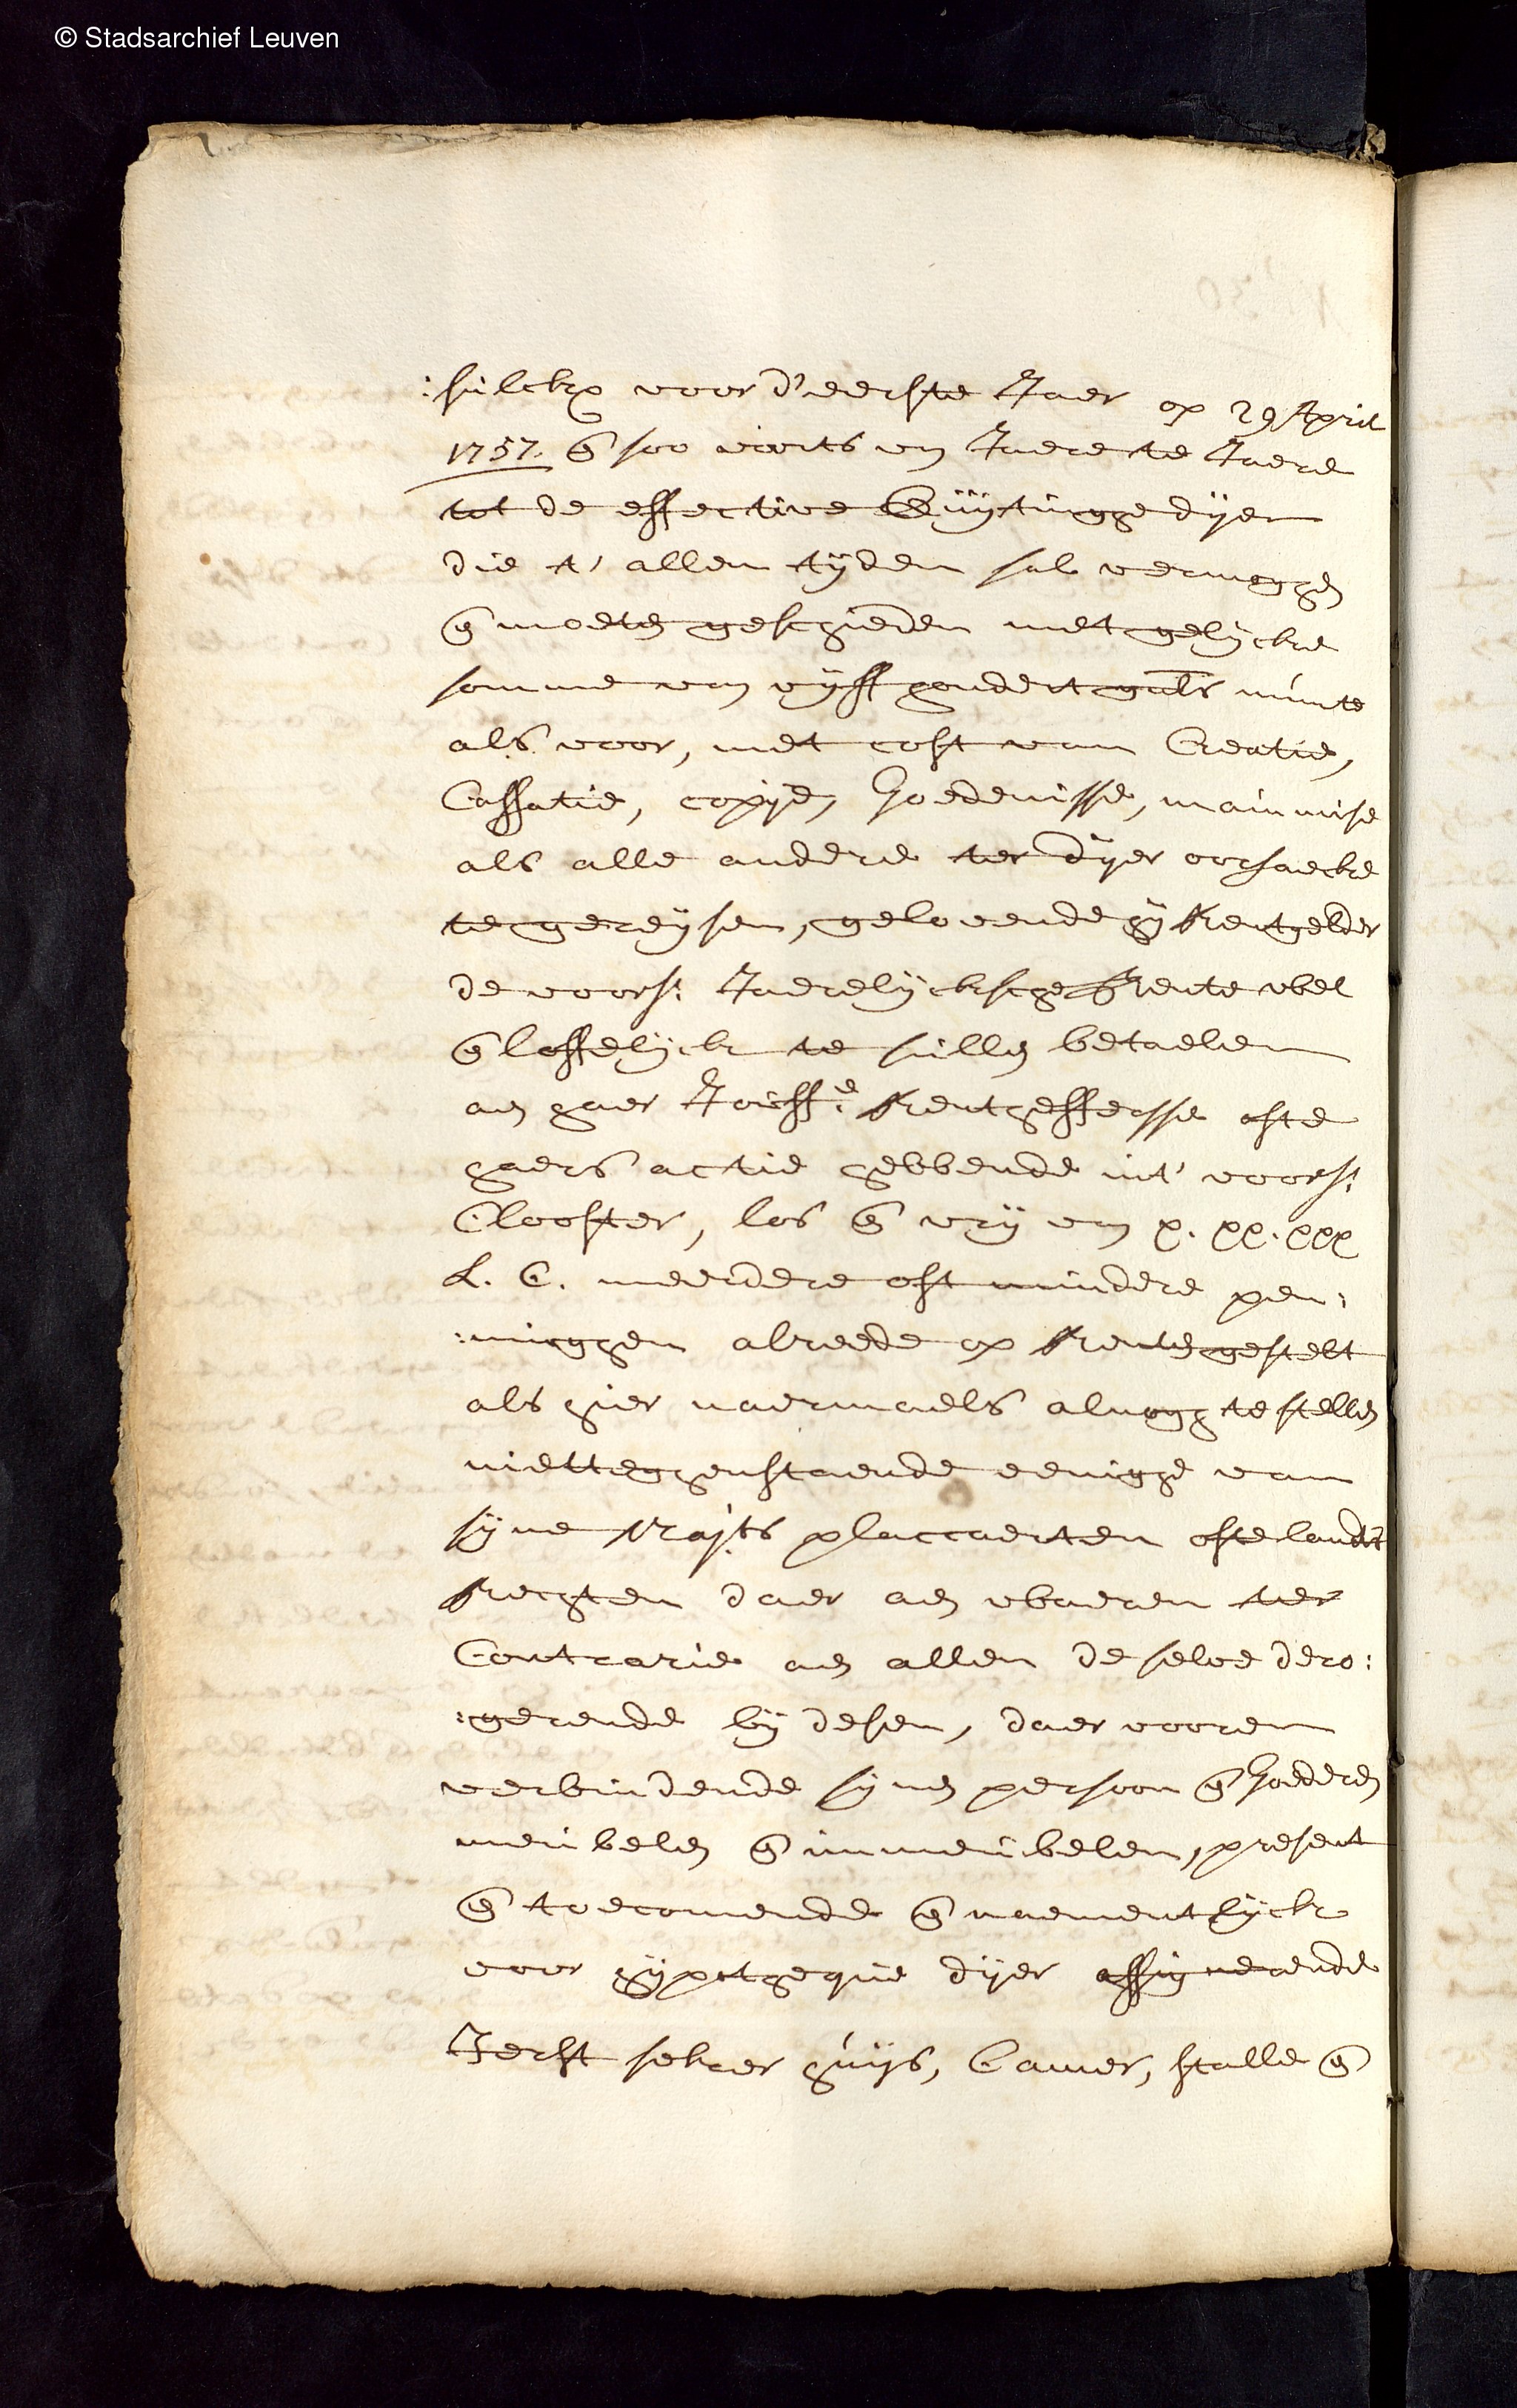 © Stadsarchief Leuven
:sulckx voor d'eerste Jaer op 29 April
1757. en̄ soo vorts van Jaere te Jaere
tot de effective quÿtinghe dÿer
die t' allen tÿden sal vermoghen
en̄ moeten geschieden met gelÿcke
somme van vÿff hondert guls munte
als voor, met cost van Creatie,
Cassatie, copÿe, Goedenisse, mainmise
als alle andere ter dÿer oorsaecke
te gereÿsen, gelovende hÿ Rentgelder
de voors: Jaerelÿcksche Rente wel
en̄ loffelÿck te sullen betaelen
aen haer Jouffe: Rentheffersse ofte
haers actie hebbende int' voors:
Clooster, los en̄ vrÿ van x. xx. xxx
L. C. meerdere oft mindere pen:
:ninghen alreede op Renten gestelt
als hier naermaels alnogh te stellen
niettegenstaende eenighe van
sÿne Maj:ts placcaerten ofte landts
Rechten daer aen waeren ter
Contrarie aen allen de selve dero:
:gerende bÿ desen, daer vooren
verbindende sÿnen persoon en̄ Goederen
meubelen en̄ immeubelen, present
en̄ toecomende en̄ naementlÿck
voor hÿpotheque dÿer assignerende
Jerst seker huÿs, Camer, stalle en̄